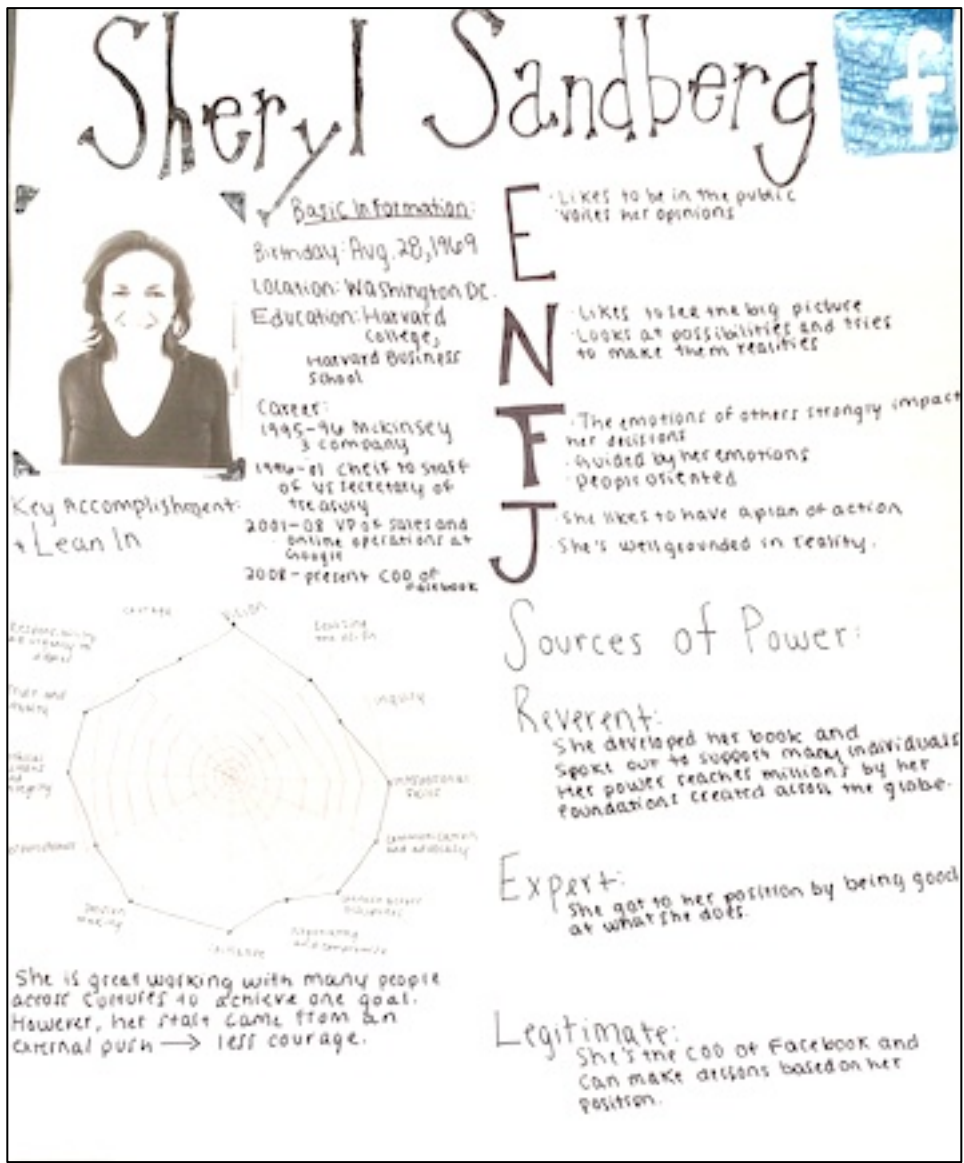 Sheryl Sandberg
f
Basic Information:
Birthday: Aug. 28, 1969
Location: Washington DC.
Education: Harvard
College,
Harvard Business
School
Career:
1995-96 Mckinsey
& company
1996-01 Cheif to Staff
of US Secretary of
treasury
2001-08 VP of Sales and
online operations at
Google
2008-present COO of
Facebook
Key Accomplishment:
Lean In
E
· Likes to be in the public
· Voices her opinions
N
· Likes to see the big picture
· Looks at possibilities and tries
to make them realities
F
· The emotions of others strongly impact
her decisions
· Guided by her emotions
· People oriented
J
· She likes to have a plan of action
· She's well grounded in reality.
Vision
Courage
Inquiry
Responsibility
Interpersonal
Skills
Communication
and advocacy
Decision
making
Resilience
Negotiating
and compromise
She is great working with many people
across cultures to achieve one goal.
However, her start came from an
external push → less courage.
Sources of Power:
Reverent:
She developed her book and
Spoke out to support many individuals
Her power reaches millions by her
foundations created across the globe.
Expert:
She got to her position by being good
at what she does.
Legitimate:
She's the COO of Facebook and
can make desions based on her
position.